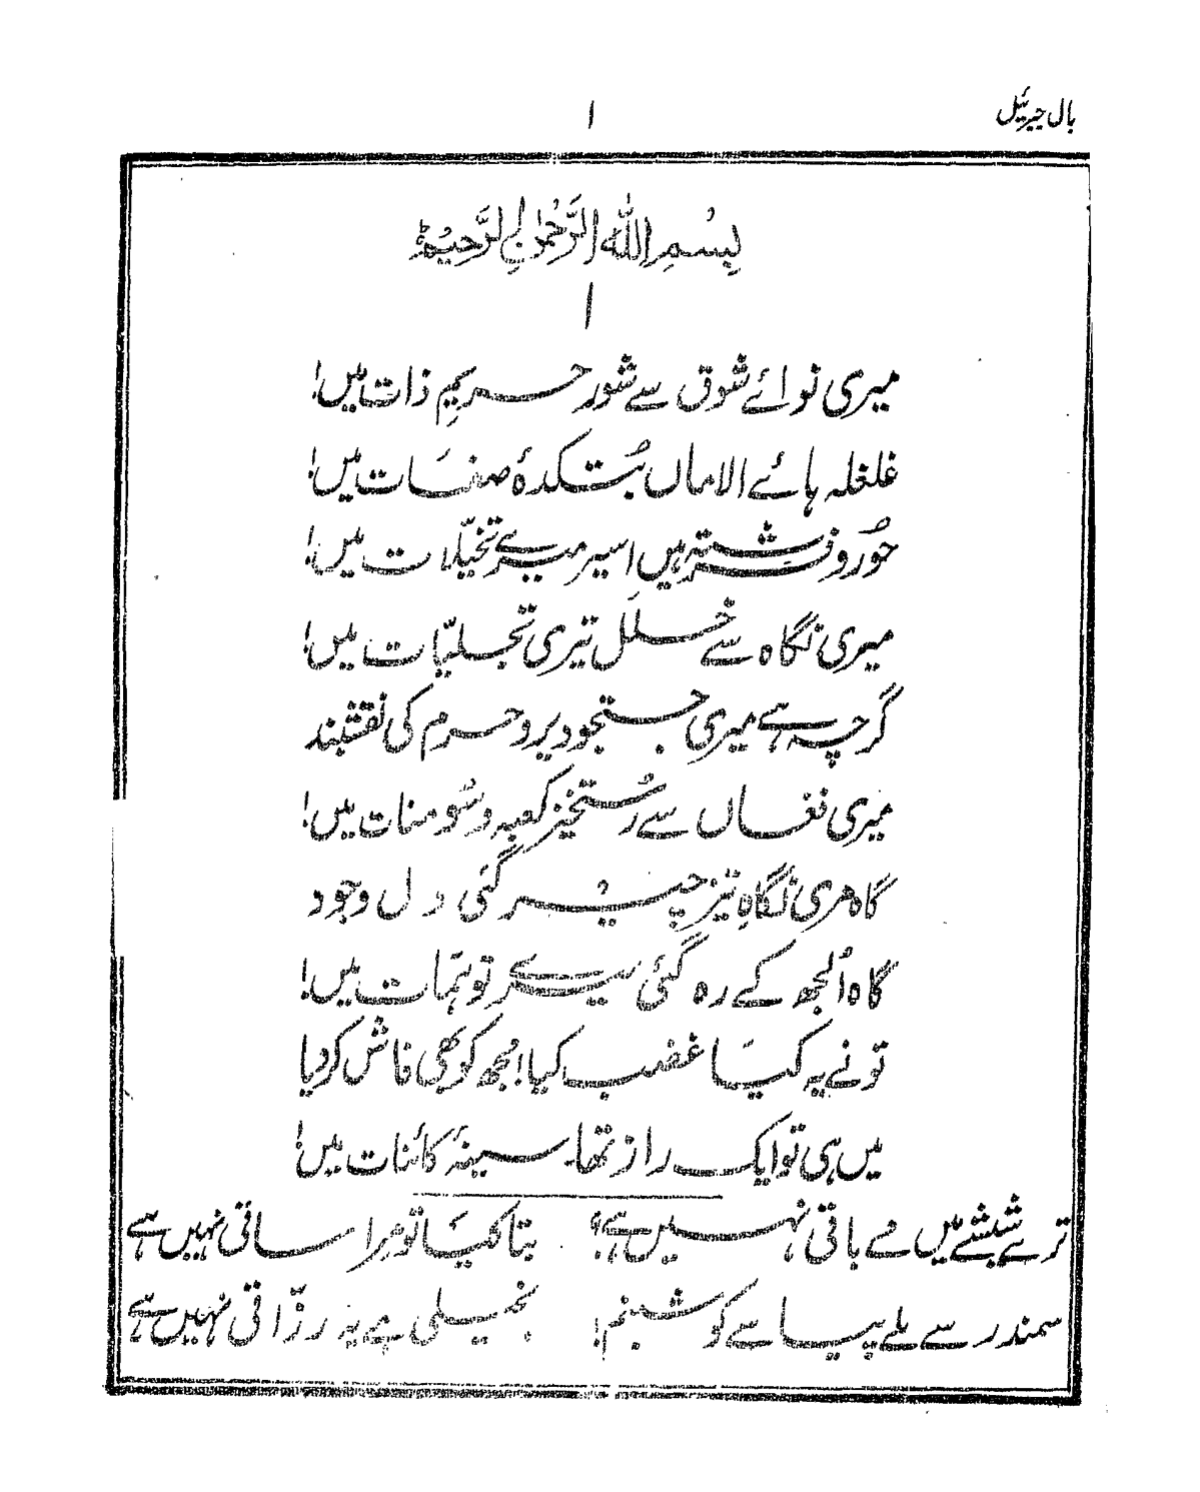 بال جبرئیل
۱
بِسْمِ اللّٰهِ الرَّحْمٰنِ الرَّحِیْمِ
۱
میری نوائے شوق سے شور حریمِ ذات میں!
غلغلہ ہائے الاماں بُتکدۂ صفات میں!
حُور و فرشتہ ہیں اسیر میرے تخیّلات میں!
میری نگاہ سے خلل تیری تجلیّات میں!
گرچہ ہے میری جستجو دیر و حرم کی نقشبند
میری فغاں سے رُستخیز کعبہ و سُومنات میں!
گاہ مری نگاہِ تیز چیر گئی دل وجود
گاہ اُلجھ کے رہ گئی میرے توہّمات میں!
تو نے یہ کیا غضب کیا! مجھ کو بھی فاش کر دیا
میں ہی تو ایک راز تھا سینۂ کائنات میں!
ترے شیشے میں مے باقی نہیں ہے؟ بتا کیا تو مِرا ساقی نہیں ہے
سمندر سے ملے پیاسے کو شبنم! بخیلی ہے یہ رزّاقی نہیں ہے